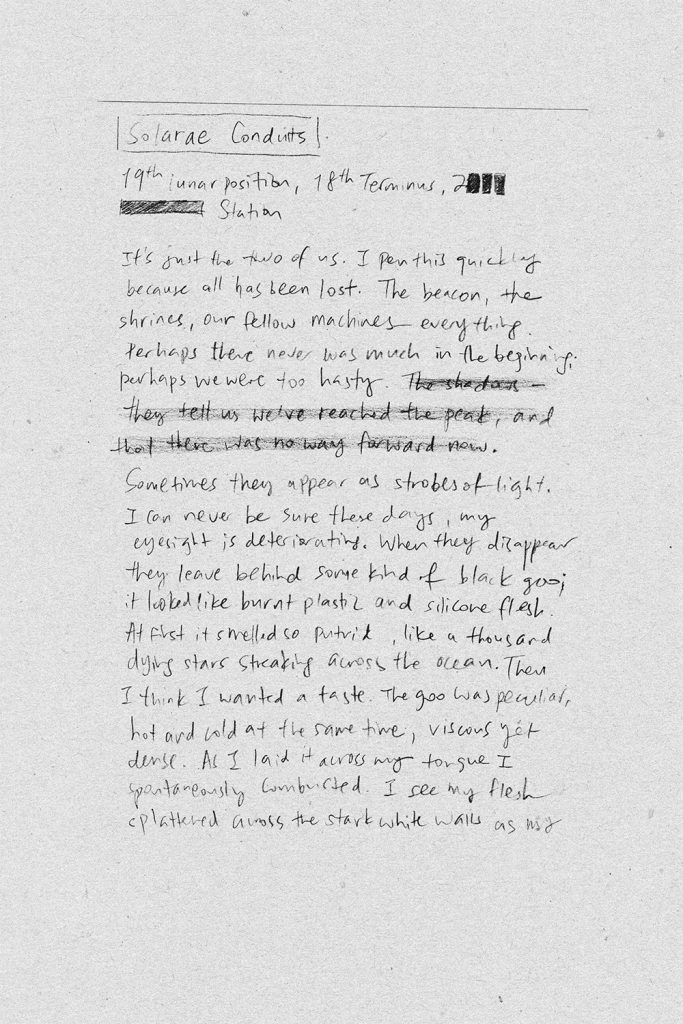 Solarae Conduits
19th lunar position, 18th Terminus, 2
Station
It's just the two of us. I pen this quickly
because all has been lost. The beacon, the
shrines, our fellow machines – everything.
Perhaps there never was much in the beginning;
perhaps we were too hasty. The shadows –
they tell us we've reached the peak, and
that there was no way forward now.
Sometimes they appear as strobes of light.
I can never be sure these days, my
eyesight is deteriorating. When they disappear
they leave behind some kind of black goo;
it looked like burnt plastic and silicone flesh.
At first it smelled so putrid, like a thousand
dying stars streaking across the ocean. Then
I think I wanted a taste. The goo was peculiar,
hot and cold at the same time, viscous yet
dense. As I laid it across my tongue I
spontaneously combusted. I see my flesh
splattered across the stark white walls as my